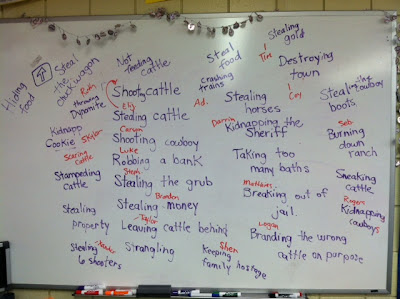 Hiding food
Steal the chuckwagon
Ruth
throwing Dynamite
Kidnapp Cookie
Skylar
Scaring cattle
Stampeding cattle
Stealing property
Stealing
6 shooters
Not feeding cattle
Shooty cattle
Elij
Stealing cattle
Shooting cowboy
Luke
Robbing a bank
Steph
Stealing the grub
Brandon
Stealing money
Taylor
Leaving cattle behind
Strangling
Steal food
Crashing trains
Ad.
Stealing horses
Darrin
Kidnapping the Sheriff
Taking too many baths
Breaking out of jail.
Logan
Branding the wrong cattle on purpose
Shen
Keeping family hostage
Stealing gold
! Tim
Destroying town
! Coy
Stealing cowboy boots
Seb.
Burning down ranch
Sneaking cattle
Rogers
Kidnapping cowboys